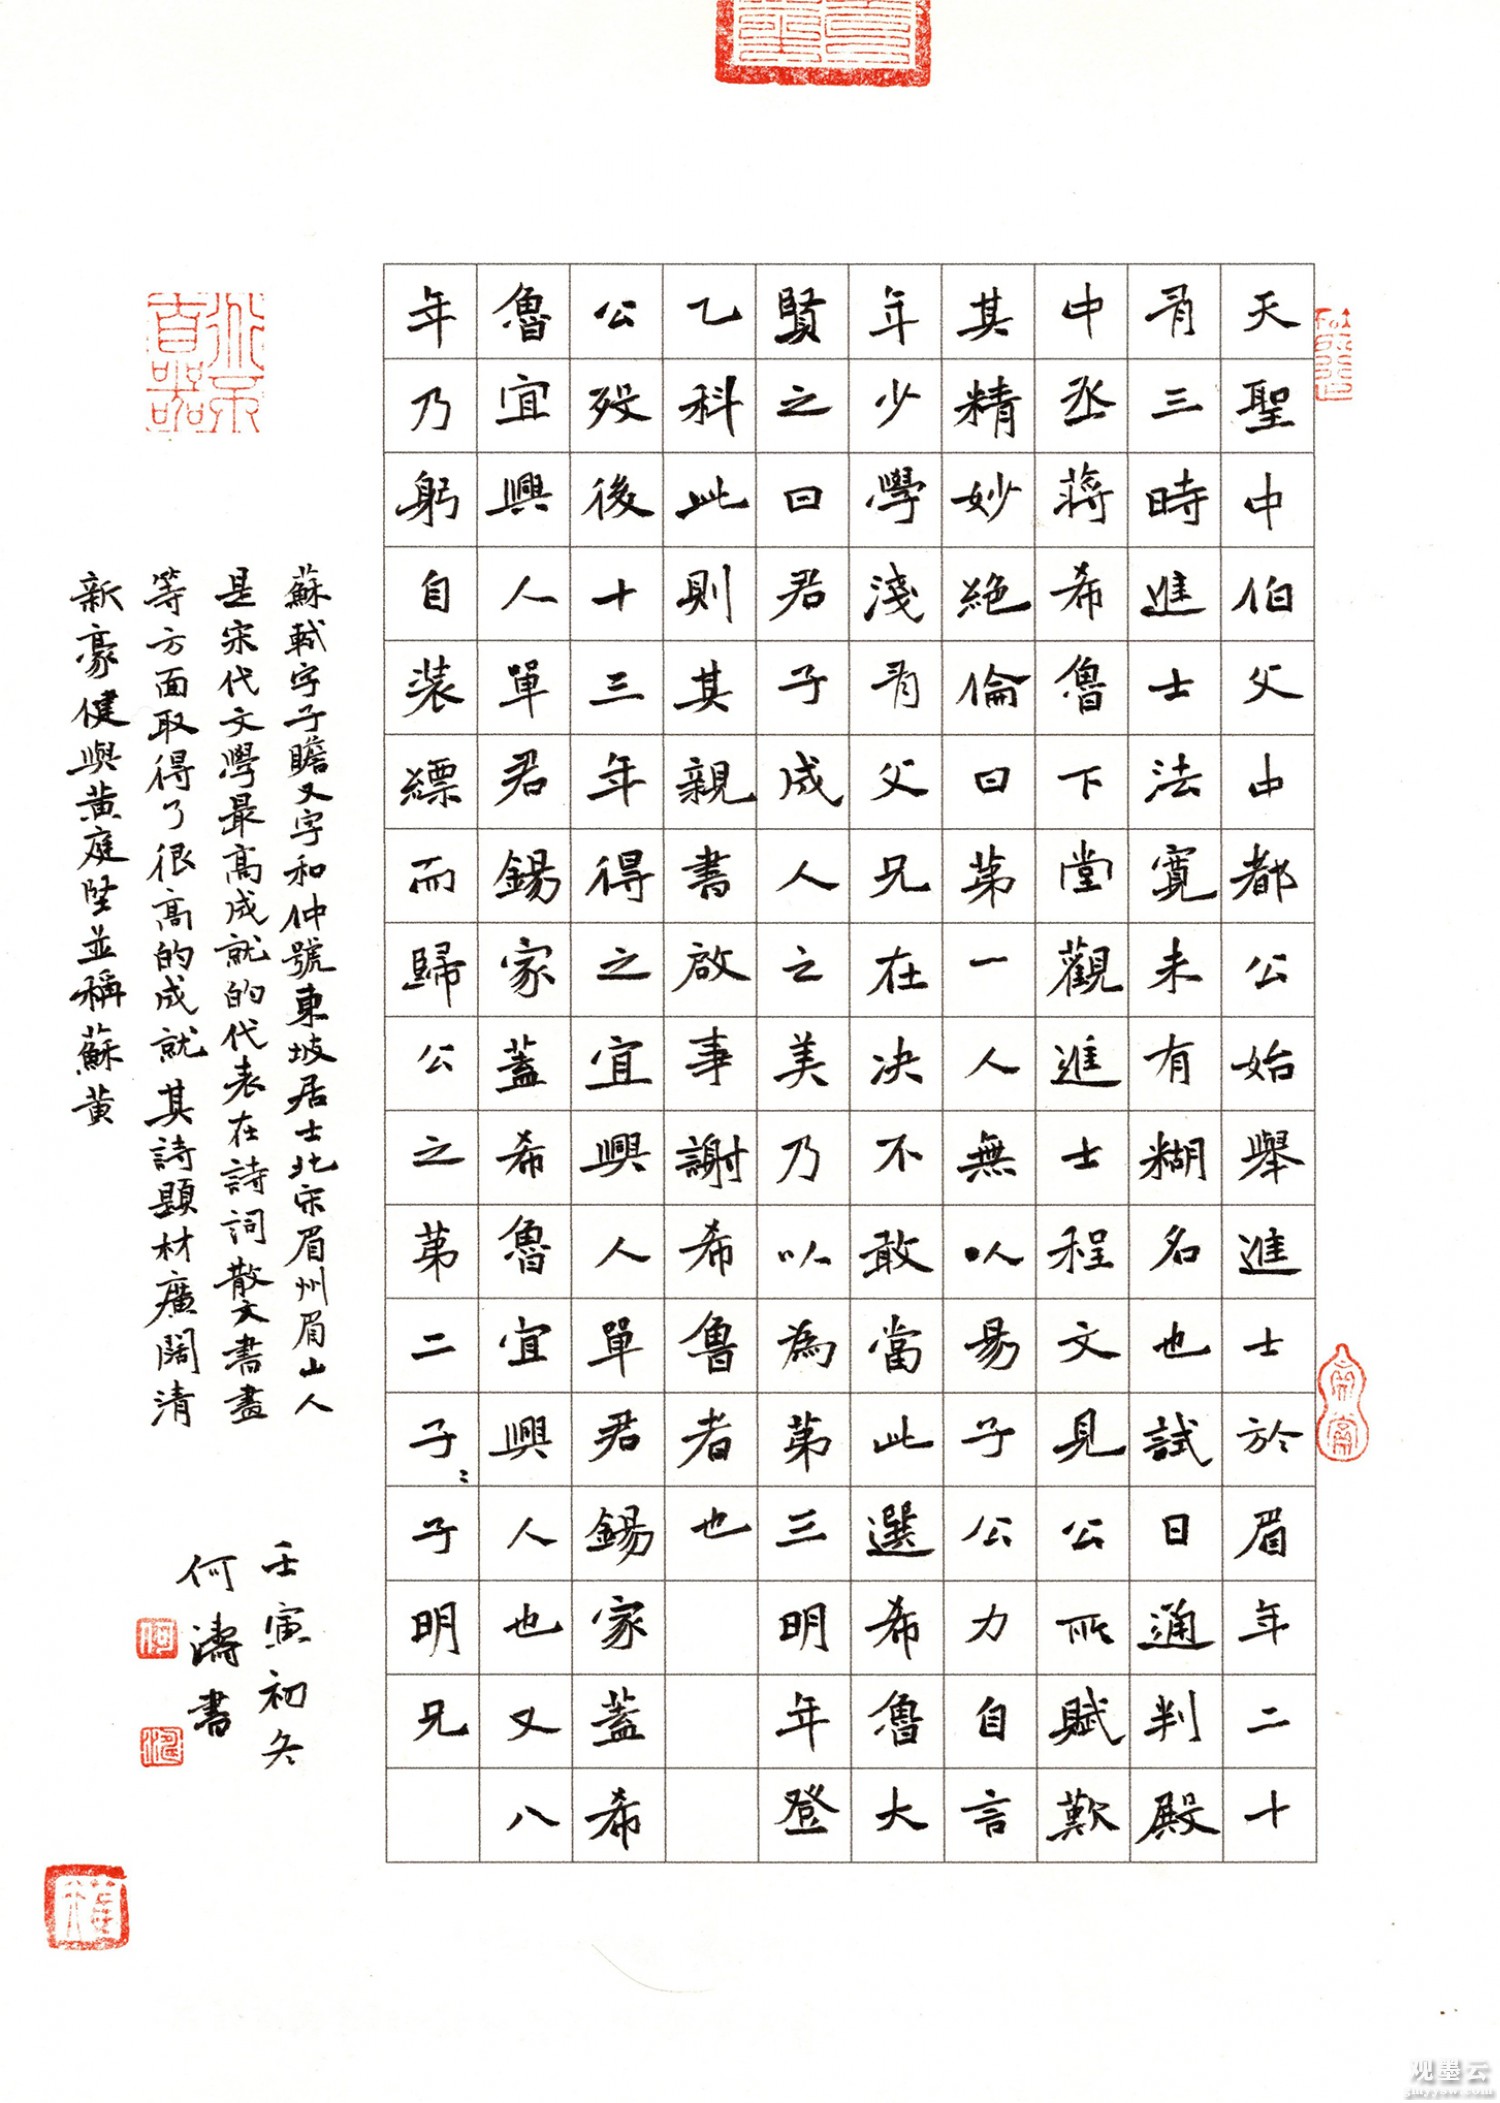 天聖中伯父中都公始舉進士於眉年二十
有三時進士法寬未有糊名也試日通判殿
中丞蔣希魯下堂觀進士程文見公所賦歎
其精妙絕倫曰第一人無以易子公力自言
年少學淺有父兄在決不敢當此選希魯大
賢之曰君子成人之美乃以為第三明年登
乙科此則其親書啟事謝希魯者也
公歿後十三年得之宜興人單君錫家蓋希
魯宜興人單君錫家蓋希魯宜興人也又八
年乃躬自裝縹而歸公之第二子:子明兄
蘇軾字子瞻又字和仲號東坡居士北宋眉州眉山人
是宋代文學最高成就的代表在詩詞散文書畫
等方面取得了很高的成就其詩題材廣闊清
新豪健與黃庭堅並稱蘇黃
壬寅初冬
何濤書
观墨云
gmyyow.com